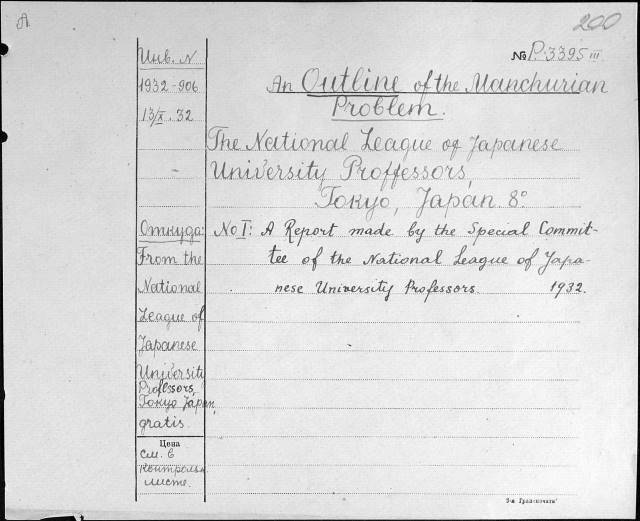 A
200
№ P.3395 III
An Outline of the Manchurian
Problem.
The National League of Japanese
University Proffessors,
Tokyo, Japan. 8°
No I: A Report made by the Special Commit-
tee of the National League of Japa-
nese University Professors. 1932.
Инв. N
1932-906
13/X. 32
Откуда:
From the
National
League of
Japanese
University
Proffessors,
Tokyo Japan,
gratis
Цена
см. в
контрольн.
листе.